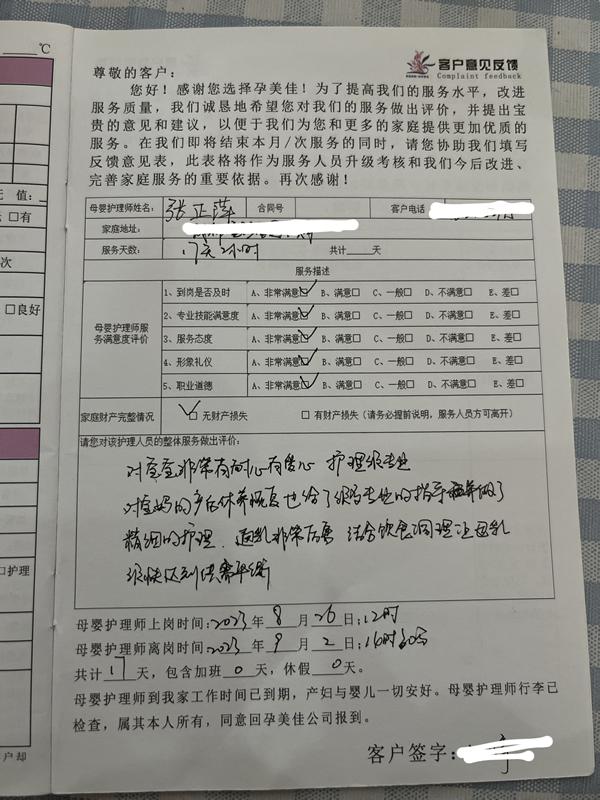 ℃
客户意见反馈
Complaint feedback
尊敬的客户：
您好！感谢您选择孕美佳！为了提高我们的服务水平，改进
服务质量，我们诚恳地希望您对我们的服务做出评价，并提出宝
贵的意见和建议，以便于我们为您和更多的家庭提供更加优质的
服务。在我们即将结束本月/次服务的同时，请您协助我们填写
反馈意见表，此表格将作为服务人员升级考核和我们今后改进、
完善家庭服务的重要依据。再次感谢！
母婴护理师姓名： 张正萍 合同号 客户电话
家庭地址：
服务天数： 17天2小时 共计____天
服务描述
母婴护理师服
务满意度评价
1、到岗是否及时 A、非常满意☑ B、满意□ C、一般□ D、不满意□ E、差□
2、专业技能满意度 A、非常满意☑ B、满意□ C、一般□ D、不满意□ E、差□
3、服务态度 A、非常满意☑ B、满意□ C、一般□ D、不满意□ E、差□
4、形象礼仪 A、非常满意☑ B、满意□ C、一般□ D、不满意□ E、差□
5、职业道德 A、非常满意☑ B、满意□ C、一般□ D、不满意□ E、差□
家庭财产完整情况 ☑ 无财产损失 □ 有财产损失（请务必提前说明，服务人员方可离开）
请您对该护理人员的整体服务做出评价：
对宝宝非常有耐心有爱心 护理很专业
对宝妈的产后休养恢复也给了很多专业的指导 做了
精细的护理．通乳非常厉害 结合饮食调理让母乳
很快达到供需平衡
母婴护理师上岗时间：2023年8月26日：12时
母婴护理师离岗时间：2023年9月2日：16时
共计17天，包含加班0天，休假0天。
母婴护理师到我家工作时间已到期，产妇与婴儿一切安好。母婴护理师行李已
检查，属其本人所有，同意回孕美佳公司报到。
客户签字：
无 值：
□有
次
□良好
□护理
户 却